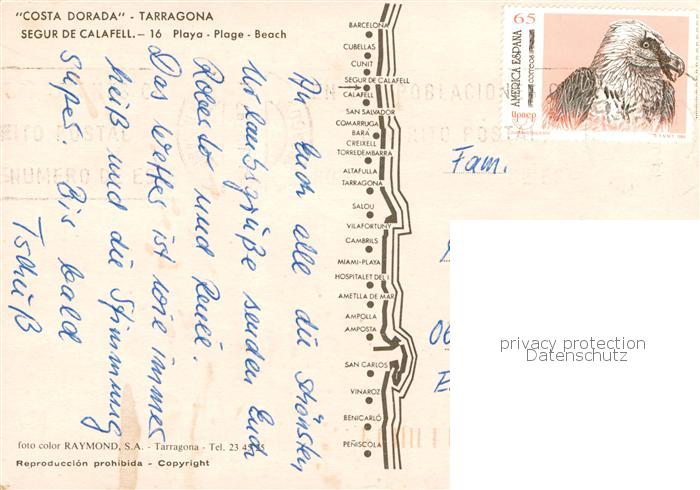 "COSTA DORADA" - TARRAGONA
SEGUR DE CALAFELL. – 16 Playa - Plage - Beach
An Euch alle die schönsten
Urlaubsgrüße senden Euch
Roberto und Renée.
Das Wetter ist wie immer
heiß und die Stimmung
super. Bis bald
Tschüß
foto color RAYMOND, S.A. - Tarragona - Tel. 23
Reproducción prohibida - Copyright
BARCELONA
CUBELLAS
CUNIT
SEGUR DE CALAFELL
CALAFELL
SAN SALVADOR
COMARRUGA
BARÁ
CREIXELL
TORREDEMBARRA
ALTAFULLA
TARRAGONA
SALOU
VILAFORTUNY
CAMBRILS
MIAMI-PLAYA
HOSPITALET DEL I.
AMETLLA DE MAR
AMPOLLA
AMPOSTA
SAN CARLOS
VINAROZ
BENICARLÓ
PEÑISCOLA
65
AMÉRICA ESPAÑA
correos
upaep
POBLACION
POSTAL
NUMERO DE
Fam.
privacy protection
Datenschutz